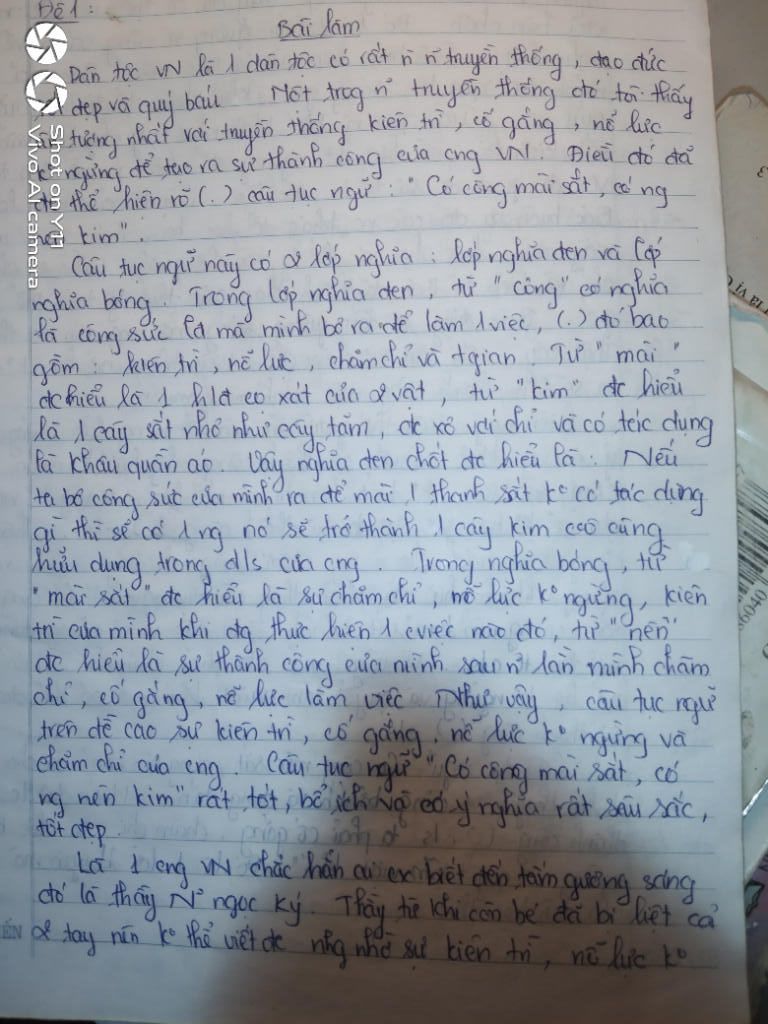 Đề 1:
Bài làm
Dân tộc VN là 1 dân tộc có rất n` n` truyền thống, đạo đức
đẹp và quý báu Một trog n~ truyền thống đó tôi thấy
tượng nhất với truyền thống kiên trì, cố gắng, nổ lực
ngừng để tạo ra sự thành công của cng VN. Điều đó đã
thể hiện rõ (.) câu tục ngữ: "Có công mài sắt, có ng
kim".
Câu tục ngữ này có 2 lớp nghĩa: lớp nghĩa đen và lớp
nghĩa bóng. Trong lớp nghĩa đen, từ "công" có nghĩa
là công sức lđ mà mình bỏ ra để làm 1 việc, (.) đó bao
gồm: kiên trì, nổ lực, chăm chỉ và tgian. Từ "mài"
đc hiểu là 1 hđ cọ xát của 2 vật, từ "kim" đc hiểu
là 1 cây sắt nhỏ như cây tăm, đc xỏ với chỉ và có tác dụng
là khâu quần áo. Vậy nghĩa đen chốt đc hiểu là: Nếu
ta bỏ công sức của mình ra để mài 1 thanh sắt k° có tác dụng
gì thì sẽ có 1 ng nó sẽ trở thành 1 cây kim cũng
hữu dụng trong đ/s của cng. Trong nghĩa bóng, từ
"mài sắt" đc hiểu là sự chăm chỉ, nổ lực k° ngừng, kiên
trì của mình khi đg thực hiện 1 cviệc nào đó, từ "nên"
đc hiểu là sự thành công của mình sau n` lần mình chăm
chỉ, cố gắng, nổ lực làm việc Như vậy, câu tục ngữ
trên đề cao sự kiên trì, cố gắng, nổ lực k° ngừng và
chăm chỉ của cng. Câu tục ngữ "Có công mài sắt, có
ng nên kim" rất tốt, bổ ích và có ý nghĩa rất sâu sắc,
tốt đẹp.
Là 1 cng VN chắc hẳn ai biết đến tấm gương sáng
đó là thầy N~ ngọc Ký. Thầy từ khi còn bé đã bị liệt cả
2 tay nên k° thể viết đc nhg nhờ sự kiên trì, nổ lực k°
Shot on Y11
Vivo AI camera